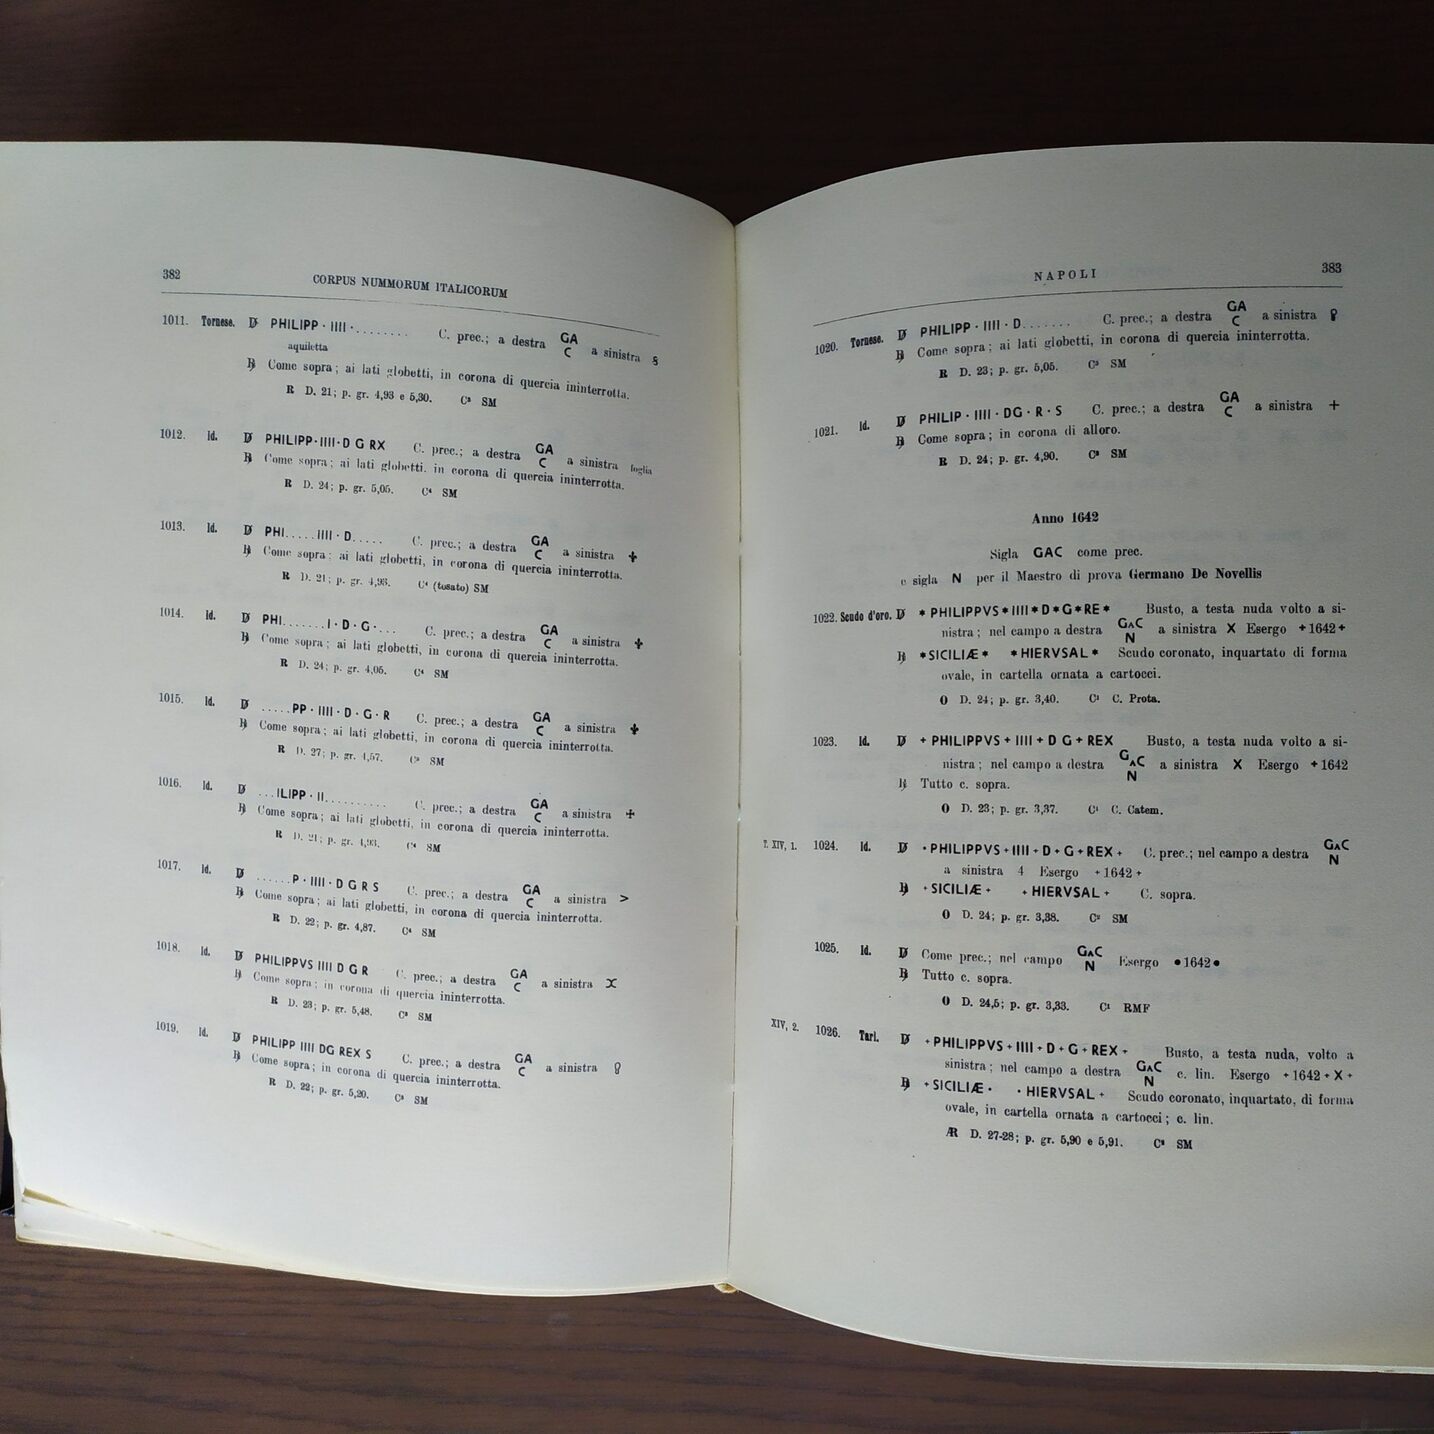 382 CORPUS NUMMORUM ITALICORUM
1011. Tornese. D/ PHILIPP · IIII · ........ C. prec.; a destra GA C a sinistra §
aquiletta
R/ Come sopra; ai lati globetti, in corona di quercia ininterrotta.
R D. 21; p. gr. 4,93 e 5,30. SM
1012. Id. D/ PHILIPP·IIII·D G RX C. prec.; a destra GA C a sinistra foglia
R/ Come sopra; ai lati globetti, in corona di quercia ininterrotta.
R D. 24; p. gr. 5,05. C⁴ SM
1013. Id. D/ PHI.....IIII · D..... C. prec.; a destra GA C a sinistra ✚
R/ Come sopra; ai lati globetti, in corona di quercia ininterrotta.
R D. 21; p. gr. 4,93. C⁴ (tosato) SM
1014. Id. D/ PHI.......I · D · G · ... C. prec.; a destra GA C a sinistra ✚
R/ Come sopra; ai lati globetti, in corona di quercia ininterrotta.
R D. 24; p. gr. 4,05. C⁴ SM
1015. Id. D/ .....PP · IIII · D · G · R C. prec.; a destra GA C a sinistra ✚
R/ Come sopra; ai lati globetti, in corona di quercia ininterrotta.
R D. 27; p. gr. 4,57. SM
1016. Id. D/ ...ILIPP · II.......... C. prec.; a destra GA C a sinistra ✢
R/ Come sopra; ai lati globetti, in corona di quercia ininterrotta.
R D. 21; p. gr. 4,93. C⁴ SM
1017. Id. D/ ......P · IIII · D G R S C. prec.; a destra GA C a sinistra >
R/ Come sopra; ai lati globetti, in corona di quercia ininterrotta.
R D. 22; p. gr. 4,87. C⁴ SM
1018. Id. D/ PHILIPPVS IIII D G R C. prec.; a destra GA C a sinistra
R/ Come sopra; in corona di quercia ininterrotta.
R D. 23; p. gr. 5,48. SM
1019. Id. D/ PHILIPP IIII DG REX S C. prec.; a destra GA C a sinistra
R/ Come sopra; in corona di quercia ininterrotta.
R D. 22; p. gr. 5,20. SM
NAPOLI 383
1020. Tornese. D/ PHILIPP · IIII · D....... C. prec.; a destra GA C a sinistra
R/ Come sopra; ai lati globetti, in corona di quercia ininterrotta.
R D. 23; p. gr. 5,05. SM
1021. Id. D/ PHILIP · IIII · DG · R · S C. prec.; a destra GA C a sinistra +
R/ Come sopra; in corona di alloro.
R D. 24; p. gr. 4,90. SM
Anno 1642
Sigla GAC come prec.
e sigla N per il Maestro di prova Germano De Novellis
1022. Scudo d'oro. D/ * PHILIPPVS * IIII * D * G * RE * Busto, a testa nuda volto a si-
nistra; nel campo a destra GAC N a sinistra X Esergo +1642+
R/ *SICILIÆ * *HIERVSAL * Scudo coronato, inquartato di forma
ovale, in cartella ornata a cartocci.
O D. 24; p. gr. 3,40. C¹ C. Prota.
1023. Id. D/ + PHILIPPVS + IIII + D G + REX Busto, a testa nuda volto a si-
nistra; nel campo a destra GAC N a sinistra X Esergo +1642
R/ Tutto c. sopra.
O D. 23; p. gr. 3,37. C¹ C. Catem.
T. XIV, 1. 1024. Id. D/ + PHILIPPVS + IIII + D + G + REX + C. prec.; nel campo a destra GAC N
a sinistra 4 Esergo +1642+
R/ +SICILIÆ + + HIERVSAL + C. sopra.
O D. 24; p. gr. 3,38. C² SM
1025. Id. D/ Come prec.; nel campo GAC N Esergo •1642•
R/ Tutto c. sopra.
O D. 24,5; p. gr. 3,33. C¹ RMF
XIV, 2. 1026. Tarì. D/ +PHILIPPVS + IIII + D + G + REX + Busto, a testa nuda, volto a
sinistra; nel campo a destra GAC N c. lin. Esergo +1642+X+
R/ +SICILIÆ · · HIERVSAL + Scudo coronato, inquartato, di forma
ovale, in cartella ornata a cartocci; c. lin.
Æ D. 27-28; p. gr. 5,90 e 5,91. SM